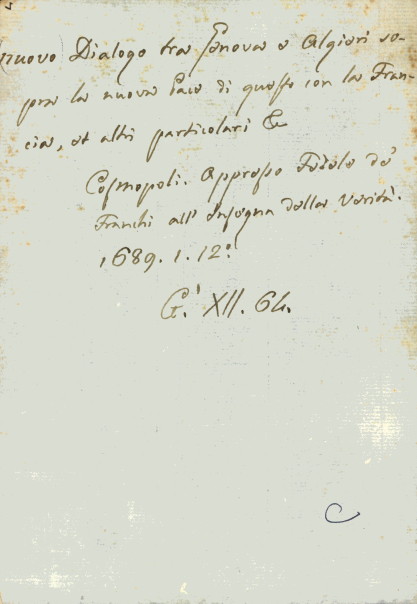 (nuovo) Dialogo tra Genova e Algieri so-
pra la nuova Pace di questo con la Fran-
cia, et altri particolari &
Cosmopoli. Appresso Fedele de'
Franchi all' Insegna della Verità.
1689. 1. 12º
G. XII. 64.
C